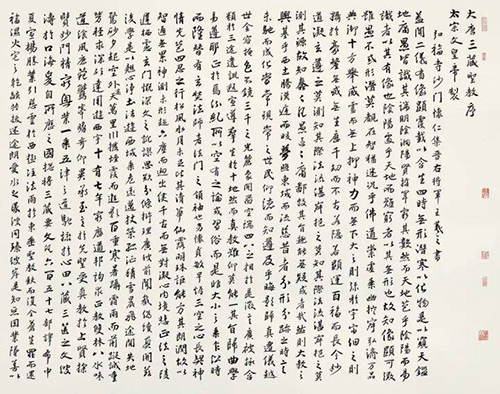 大唐三藏聖教序
太宗文皇帝製
弘福寺沙門懷仁集晉右將軍王羲之書
蓋聞二儀有像顯覆載以含生四時無形潛寒暑以化物是以窺天鑑
地庸愚皆識其端明陰洞陽賢哲罕窮其數然而天地苞乎陰陽而易
識者以其有像也陰陽處乎天地而難窮者以其無形也故知像顯可徵
雖愚不惑形潛莫覩在智猶迷況乎佛道崇虛乘幽控寂弘濟萬品
典御十方舉威靈而無上抑神力而無下大之則彌於宇宙細之則
攝於豪釐無滅無生歷千劫而不古若隱若顯運百福而長今妙
道凝玄遵之莫知其際法流湛寂挹之莫
測其源故知蠢蠢凡愚區區庸鄙投其旨趣能無疑惑者哉然則大教之
興基乎西土騰漢庭而皎夢照東域而流慈昔者分形分跡之時言
未馳而成化當常現常之世民仰德而知遵及乎晦影歸真遷儀越
世金容掩色不鏡三千之光麗象開圖空端四八之相於是微言廣被拯含
類於三途遺訓遐宣導群生於十地然而真教難仰莫能一其旨歸曲學
易遵邪正於焉紛糺所以空有之論或習俗而是非大小之乘乍沿時
而隆替有玄奘法師者法門之領袖也幼懷貞敏早悟三空之心長契神
情先苞四忍之行松風水月未足比其清華仙露明珠詎能方其朗潤故以
智通無累神測未形超六塵而迥出隻千古而無對凝心內境悲正法之陵
遲栖慮玄門慨深文之訛謬思欲分條析理廣彼前聞截偽續真開茲
後學是以翹心淨土往遊西域乘危遠邁杖策孤征積雪晨飛途閒失地
驚砂夕起空外迷天萬里山川撥煙霞而進影百重寒暑躡霜雨而前蹤誠重
勞輕求深願達周遊西宇十有七年窮歷道邦詢求正教雙林八水味
道餐風鹿菀鷲峰瞻奇仰異承至言於先聖受真教於上賢探
賾妙門精窮奧業一乘五律之道馳驟於心田八藏三篋之文波
濤於口海爰自所歷之國總將三藏要文凡六百五十七部譯布中
夏宣揚勝業引慈雲於西極注法雨於東垂聖教缺而復全蒼生罪而還
福濕火宅之乾焰共拔迷途朗愛水之昏波同臻彼岸是知惡因業墜善以